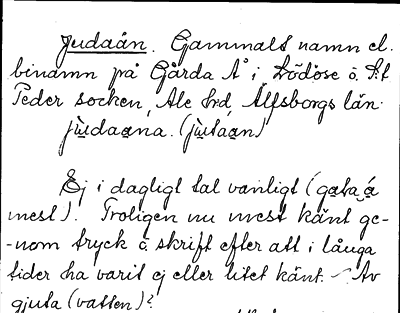 Judaån. Gammalt namn el.
binamn på Gårda Å i Lödöse o. S:t
Peder socken, Ale hrd, Älfsborgs län.
judaana. (jutáan)
Ej i dagligt tal vanligt (gata,á
mest). Troligen nu mest känt ge-
-nom tryck o skrift efter att i långa
tider ha varit ej eller litet känt. – Av
gjuta (vatten)?